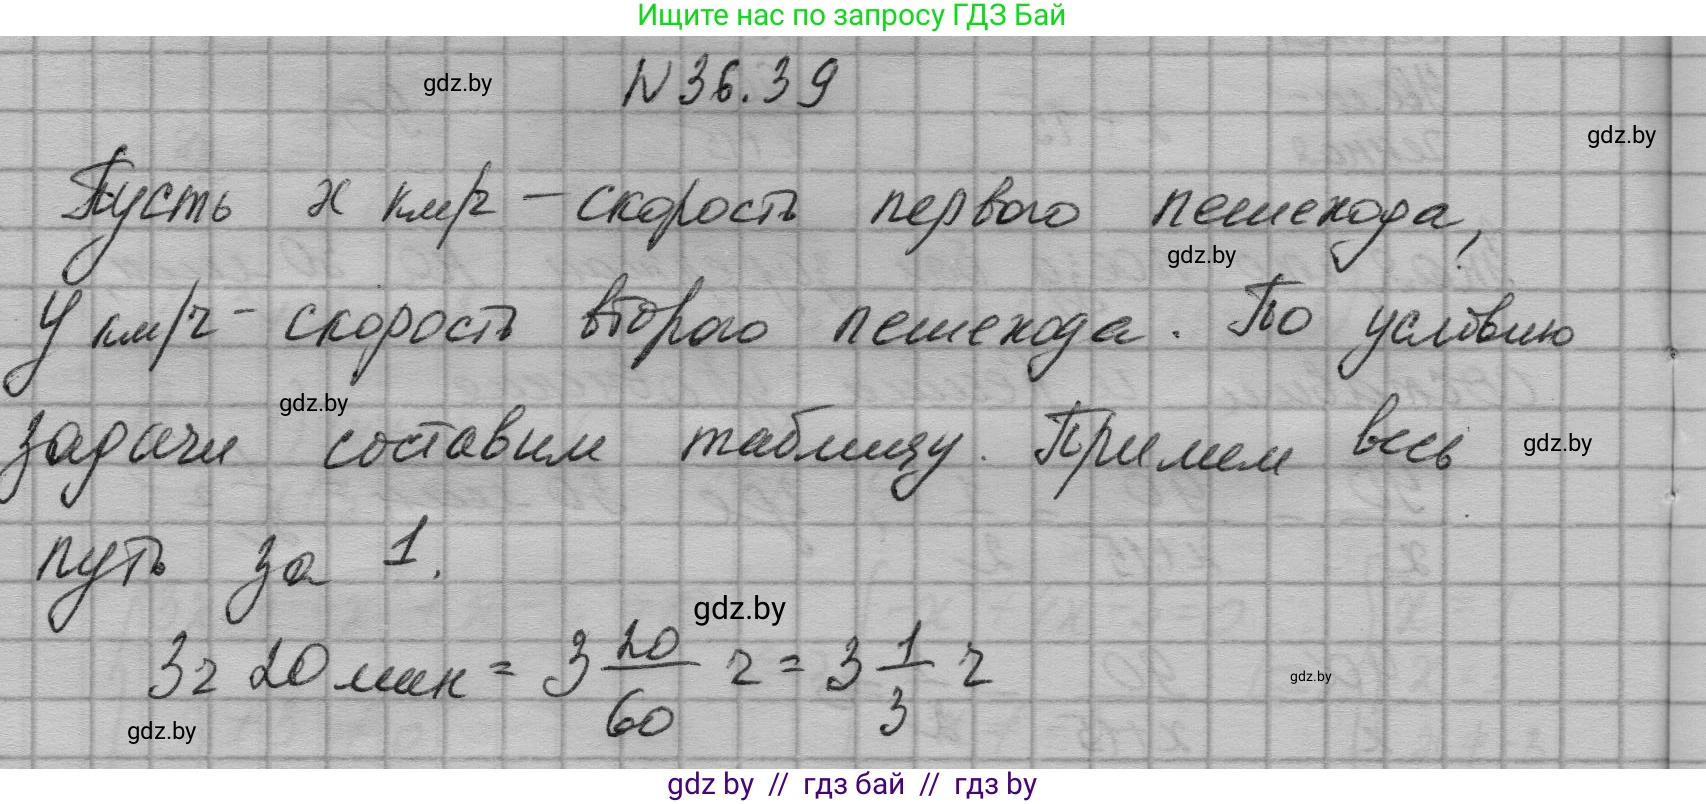 Ищите нас по запросу ГДЗ Бай
gdz.by
N 36.39
gdz.by
Пусть x км/ч - скорость первого пешехода,
gdz.by
y км/ч - скорость второго пешехода. По условию
gdz.by
задачи составим таблицу. Примем весь
gdz.by
путь за 1.
gdz.by
3ч 20 мин = 3 20/60 ч = 3 1/3 ч
gdz.by
gdz.by
gdz by // гдз бай // гдз by